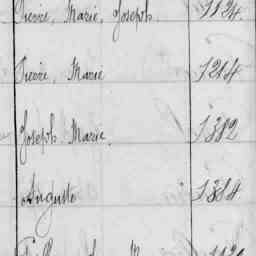 Pierre, Marie, Joseph. 1124.
Pierre, Marie 1214.
Joseph Marie. 1382
Auguste 1384.